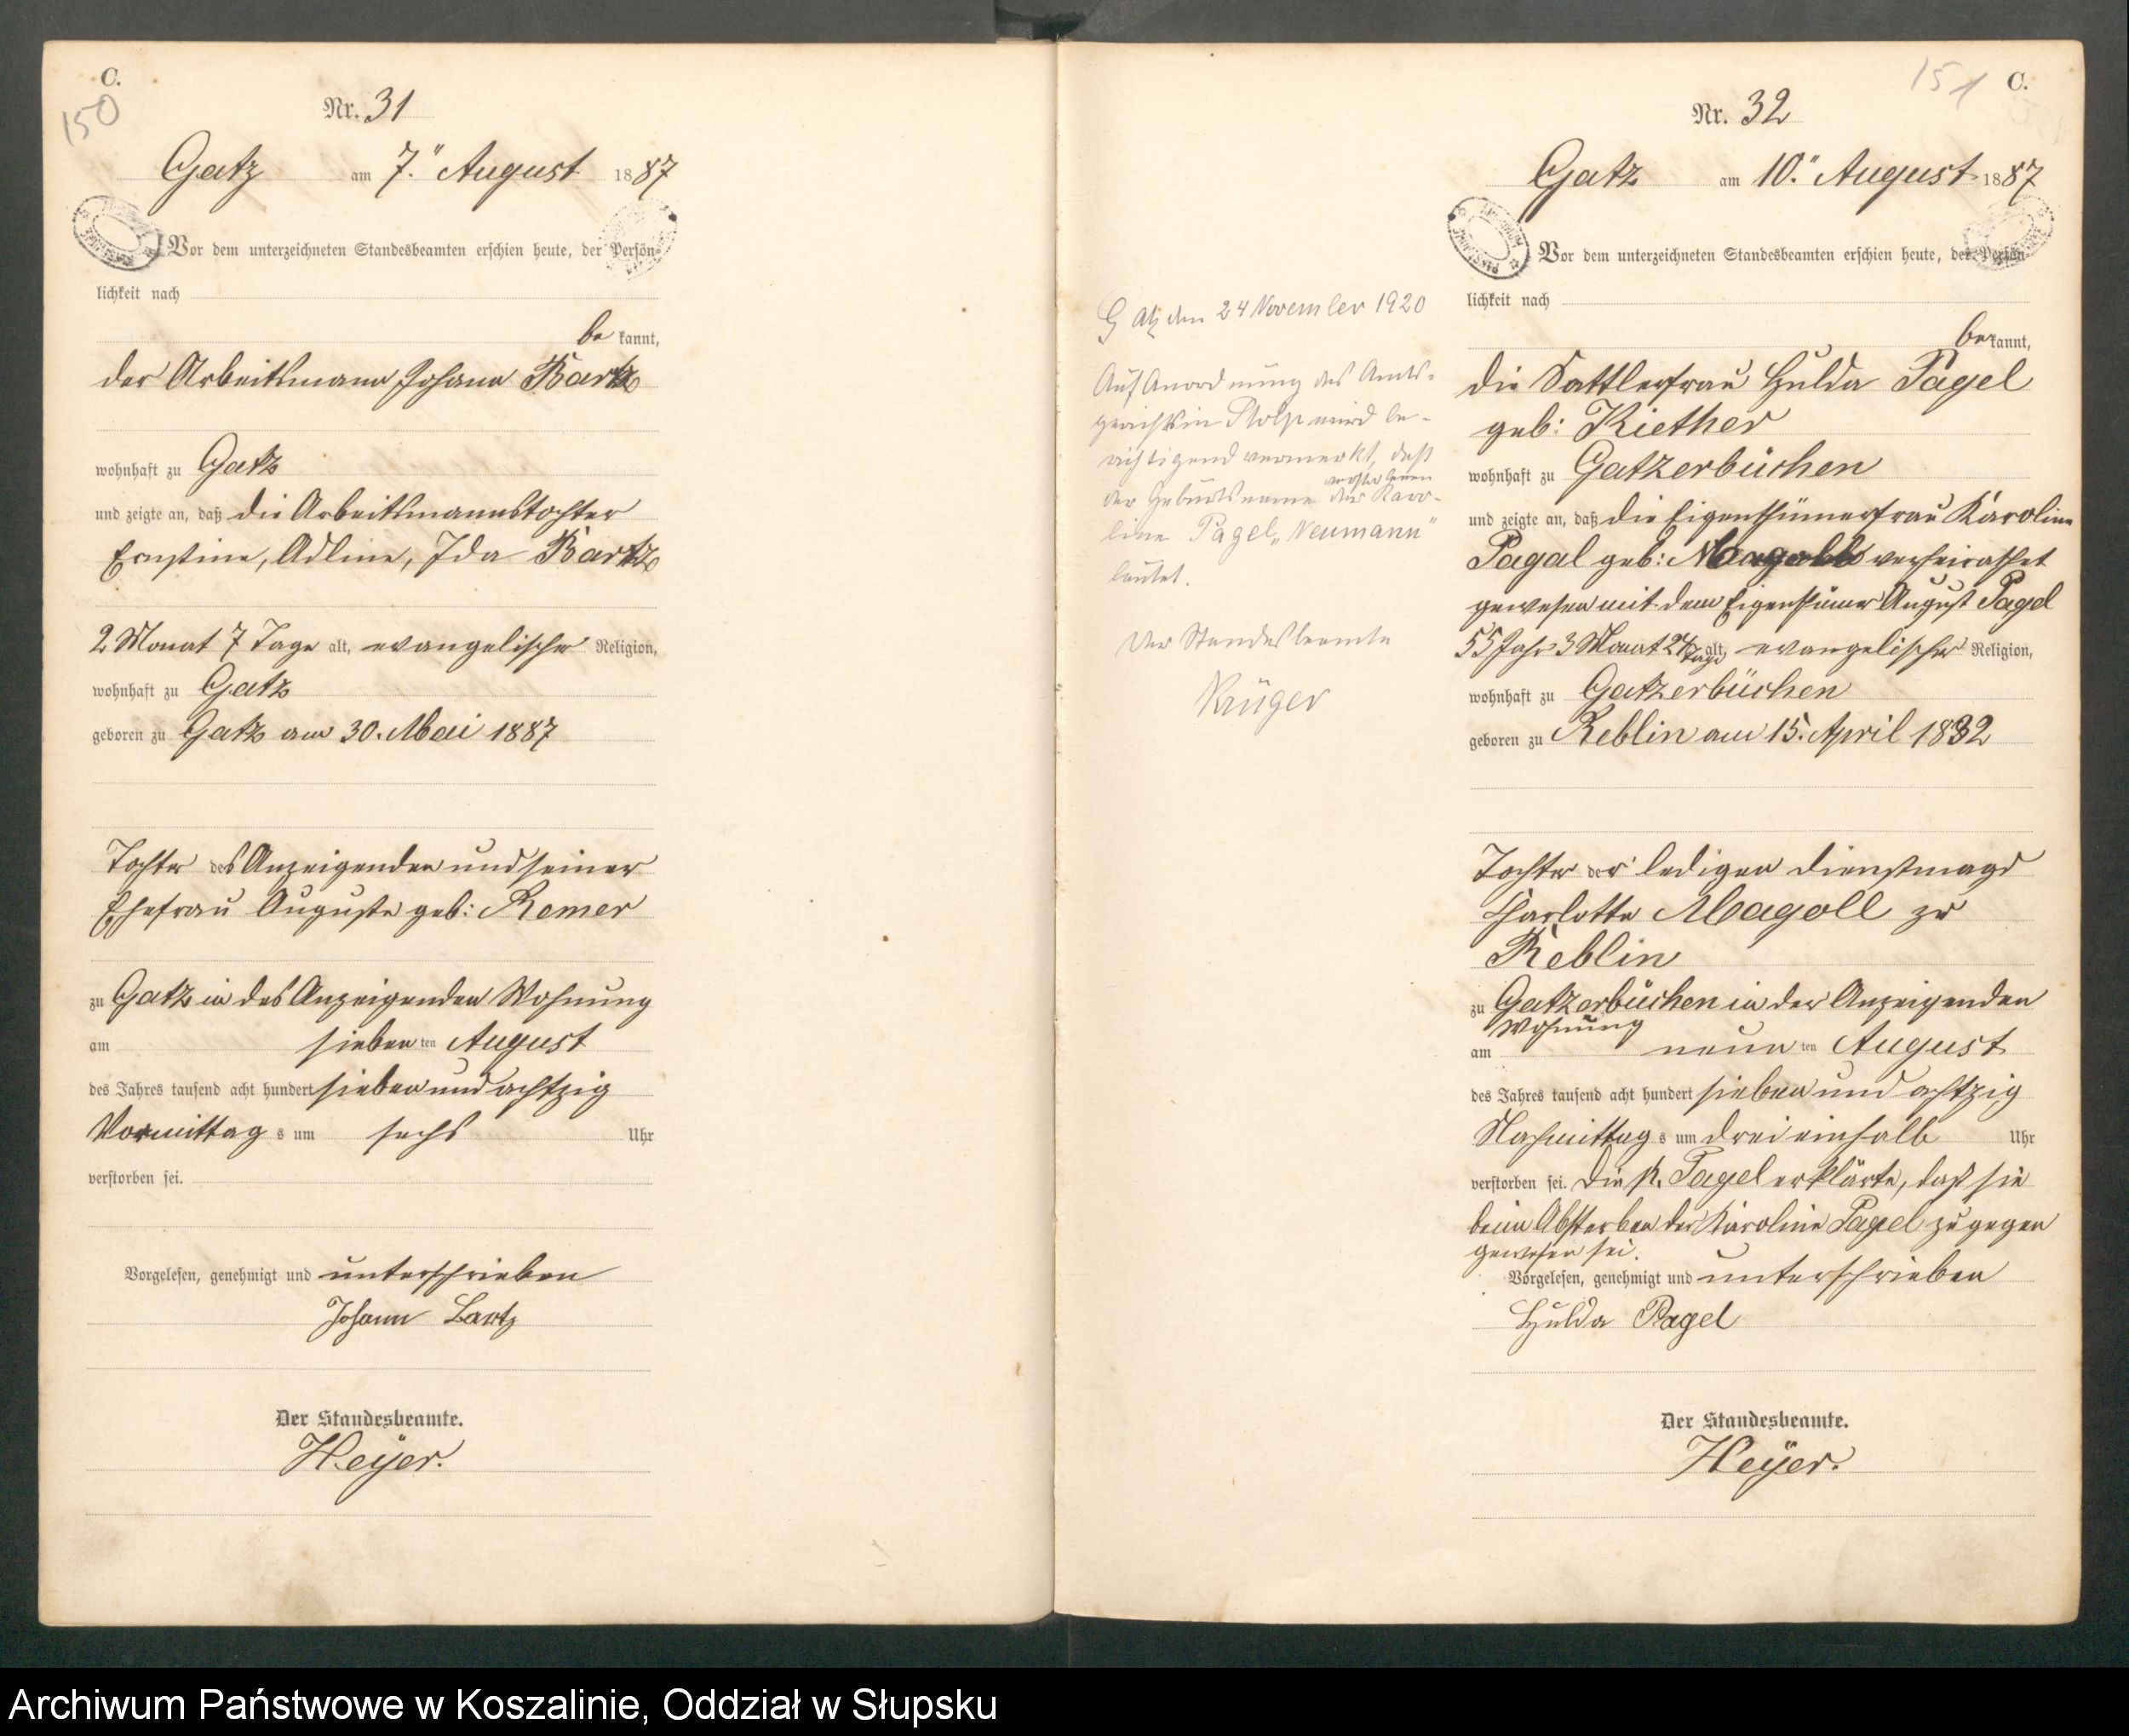 C.
150
Nr. 31
Gatz am 7.ⁿ August 1887
Vor dem unterzeichneten Standesbeamten erschien heute, der Persön-
lichkeit nach
be kannt,
der Arbeitsmann Johann Bartz
wohnhaft zu Gatz
und zeigte an, daß die Arbeitsmannstochter
Ernstine, Adline, Ida Bartz
2 Monat 7 Tage alt, evangelischer Religion,
wohnhaft zu Gatz
geboren zu Gatz am 30. Mai 1887
Tochter des Anzeigenden und seiner
Ehefrau Auguste geb: Remer
zu Gatz in des Anzeigenden Wohnung
am sieben ten August
des Jahres tausend acht hundert sieben und achtzig
Vormittag s um sechs Uhr
verstorben sei.
Vorgelesen, genehmigt und unterschrieben
Johann Bartz
Der Standesbeamte.
Heyer.
Gatz den 24 November 1920
Auf Anordnung des Amts-
gerichts in Stolp wird be-
richtigend vermerkt, daß
der Geburtsname der verstorbenen Karo-
line Pagel „Neumann"
lautet.
Der Standesbeamte
Krüger
151
C.
Nr. 32
Gatz am 10.ⁿ August 1887
Vor dem unterzeichneten Standesbeamten erschien heute, der Persön-
lichkeit nach
be kannt,
die Sattlerfrau Hulda Pagel
geb: Kiether
wohnhaft zu Gatzerbüchen
und zeigte an, daß die Eigenthümerfrau Karoline
Pagal geb: verheirathet
gewesen mit dem Eigenthümer August Pagel
55 Jahr 3 Monat 24 Tage alt, evangelischer Religion,
wohnhaft zu Gatzerbüchen
geboren zu Reblin am 15. April 1832
Tochter der ledigen Dienstmagd
Charlotte Magoll zu
Reblin
zu Gatzerbüchen in der Anzeigenden
Wohnung
am neun ten August
des Jahres tausend acht hundert sieben und achtzig
Nachmittag s um drei einhalb Uhr
verstorben sei. Die p. Pagel erklärte, daß sie
beim Absterben der Karoline Pagel zugegen
gewesen sei.
Vorgelesen, genehmigt und unterschrieben
Hulda Pagel
Der Standesbeamte.
Heyer.
Archiwum Państwowe w Koszalinie, Oddział w Słupsku